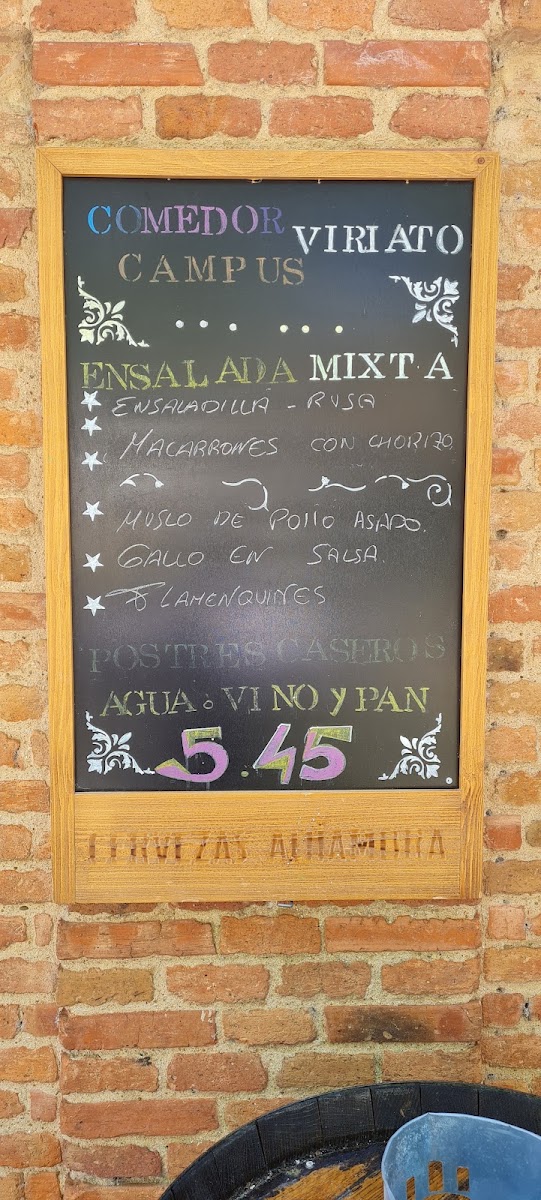 COMEDOR VIRIATO
CAMPUS
ENSALADA MIXTA
ENSALADILLA - RUSA
MACARRONES CON CHORIZO
MUSLO DE POLLO ASADO.
GALLO EN SALSA.
FLAMENQUINES
POSTRES CASEROS
AGUA o VINO y PAN
5.45
CERVEZAS ALHAMBRA